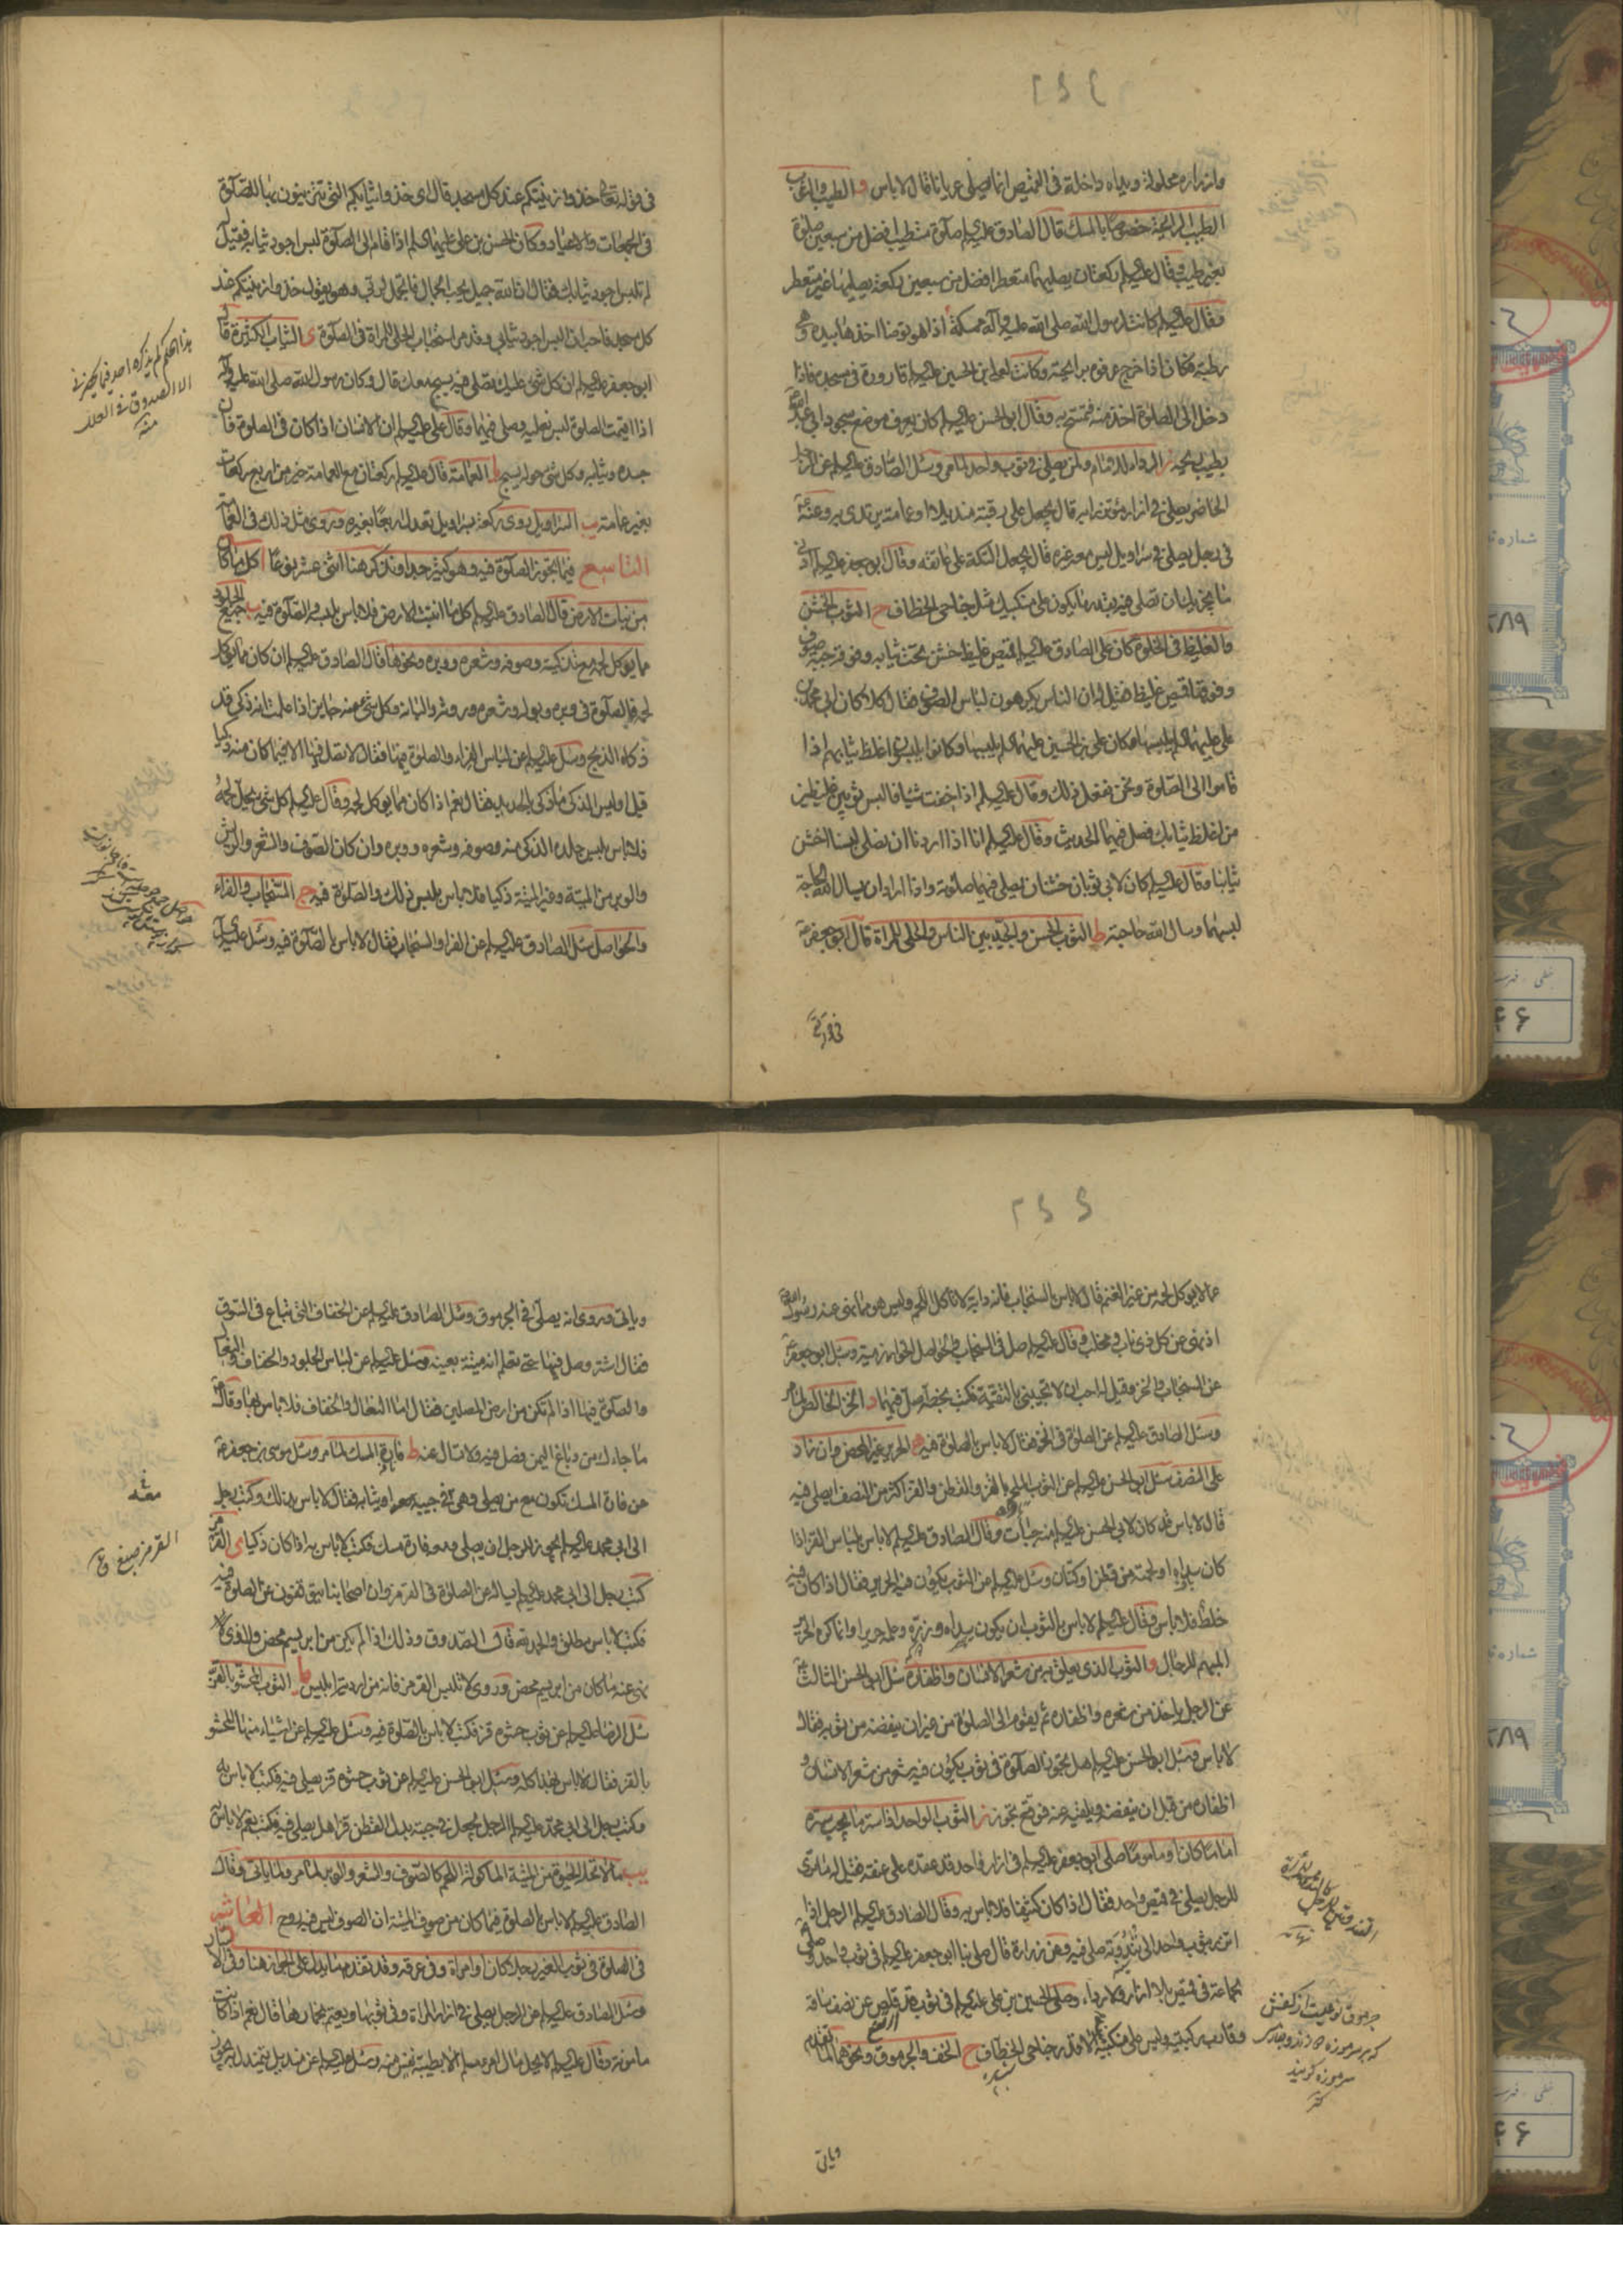 ۲۶۴
وازراره محلولة ويداه داخلة في القميص انما يصلي عريانا قال لا باس و الطيب واغب
الطيب الرايحة خصوصا بالمسك قال الصادق عليه السلم صلوة متطيب افضل من سبعين صلوة
بغير طيب وقال عليه السلم ركعتان يصليهما متعطرا افضل من سبعين ركعة يصليها غير متعطر
فقال عليه السلم كانت لرسول الله صلى الله عليه وآله ممسكة اذا هو توضا اخذها بيده وهي
رطبة فكان اذا خرج عرفوه برايحته وكانت لعلي بن الحسين عليه السلم قارورة في مسجده فاذا
دخل الى الصلوة اخذ منه فتمسح به وقال ابو الحسن عليه السلم كان يعرف موضع سجود ابي عبد الله
بطيب ريحه ز الرداء لا سيما ولمن يصلي في ثوب واحد لما مر وسئل الصادق عليه السلم عن الرجل
الحاضر يصلي في ازار مؤتزرا به قال يجعل على رقبته منديلا او عمامة يتردى به وعنه ع
في رجل يصلي في سراويل ليس معه غيره قال يجعل التكة على عاتقه وقال ابو جعفر عليه السلم ادنى
ما يجزيك ان تصلي فيه بقدر ما يكون على منكبيك مثل جناحي الخطاف ح الثوب الخشن
والغليظ في الخلوة كان على الصادق عليه السلم قميص غليظ خشن تحت ثيابه وفوقه جبة صوف
وفوقها قميص غليظ فقيل له ان الناس يكرهون لباس الصوف فقال كلا كان ابي محمد بن
علي عليهما السلم يلبسها وكان علي بن الحسين عليهما السلم يلبسها وكانوا يلبسون اغلظ ثيابهم اذا
قاموا الى الصلوة ونحن نفعل ذلك وقال عليه السلم اذا خفت شيئا فالبس ثوبين غليظين
من اغلظ ثيابك فصل فيهما الحديث وقال عليه السلم انا اذا اردنا ان نصلي لبسنا اخشن
ثيابنا وقال عليه السلم كان لابي ثوبان خشنان يصلي فيهما صلوته واذا اراد ان يسال الله الحاجة
لبسهما وسال الله حاجته ط الثوب الحسن والجيد بين الناس والحلي للمراة قال ابو جعفر ع
في قوله تعالى خذوا زينتكم عند كل مسجد قال اي خذوا ثيابكم التي تتزينون بها للصلوة
في الجمعات والاعياد وكان الحسن بن علي عليهما السلم اذا قام الى الصلوة لبس اجود ثيابه فقيل له
لم تلبس اجود ثيابك فقال ان الله جميل يحب الجمال فاتجمل لربي وهو يقول خذوا زينتكم عند
كل مسجد فاحب ان البس اجود ثيابي وقد مر استحباب الحلي للمراة في الصلوة ى الثياب الكثيرة قال
ابو جعفر عليه السلم ان كل شئ عليك تصلي فيه يسبح معك قال وكان رسول الله صلى الله عليه وآله
اذا اقيمت الصلوة لبس نعليه وصلى فيهما وقال علي عليه السلم ان الانسان اذا كان في الصلوة فان
جسده وثيابه وكل شئ حوله يسبح يا العمامة قال عليه السلم ركعتان مع العمامة خير من اربع ركعات
بغير عمامة يب السراويل روى ركعة بسراويل تعدل اربعا بغيره وروى مثل ذلك في العمامة
التاسع فيما يجوز الصلوة فيه وهو كثير جدا ونذكر هنا اثنى عشر نوعا ا كل ما كان
من نبات الارض قال الصادق عليه السلم كل ما انبتت الارض فلا باس بلبسه والصلوة فيه ب جميع الجلود
مما يؤكل لحمه مع تذكيته وصوفه وشعره ووبره ونحوها قال الصادق عليه السلم ان كان مما يؤكل
لحمه فالصلوة في وبره وبوله وشعره وروثه والبانه وكل شئ منه جايز اذا علمت انه ذكي قد
ذكاه الذبح وسئل عليه السلم عن لباس الفراء والصلوة فيها فقال لا تصل فيها الا فيما كان منه ذكيا
قيل اوليس الذكي ما ذكي بالحديد فقال نعم اذا كان مما يؤكل لحمه وقال عليه السلم كل شئ يحل لحمه
فلا باس بلبس جلده الذكي منه وصوفه وشعره ووبره وان كان الصوف والشعر والريش
والوبر من الميتة وغير الميتة ذكيا فلا باس بلبس ذلك والصلوة فيه ج السنجاب والفراء
والحواصل سئل الصادق عليه السلم عن الفراء والسنجاب فقال لا باس بالصلوة فيه وسئل عليه السلم
هذا الحكم لم يذكره احد فيما يحضرني
الا الصدوق في العلل
منه
في قوله تع
۲۶۵
عما لا يؤكل لحمه من غير الغنم قال لا باس بالسنجاب فانه دابة لا تاكل اللحم وليس هو مما نهى عنه رسول الله
اذ نهى عن كل ذي ناب ومخلب وقال عليه السلم صل في السنجاب والحواصل الخوارزمية وسئل ابو جعفر ع
عن السنجاب والخز وقيل له احب ان لا تجيبني بالتقية فكتب بخطه صل فيها د الخز الخالص لما مر
وسئل الصادق عليه السلم عن الصلوة في الخز فقال لا باس بالصلوة فيه ه الحرير غير المحض وان زاد
على النصف سئل ابو الحسن عليه السلم عن الثوب الملحم بالقز والقطن والقز اكثر من النصف ايصلى فيه
قال لا باس قد كان لابي الحسن عليه السلم منه جبات وقال الصادق عليه السلم لا باس بلباس القز اذا
كان سداه او لحمته من قطن او كتان وسئل عليه السلم عن الثوب يكون فيه الحرير فقال اذا كان فيه
خلط فلا باس وقال عليه السلم لا باس بالثوب ان يكون سداه وزره وعلمه حريرا وانما كره الحرير
المبهم للرجال و الثوب الذي يعلق به من شعر الانسان واظفاره سئل ابو الحسن الثالث ع
عن الرجل ياخذ من شعره واظفاره ثم يقوم الى الصلوة من غير ان ينفضه من ثوبه فقال
لا باس وسئل ابو الحسن عليه السلم هل تجوز الصلوة في ثوب يكون فيه شعر من شعر الانسان و
اظفاره من قبل ان ينفضه ويلقيه عنه فوقع تجوز ز الثوب الواحد اذا ستر ما يجب ستره
اماما كان او ماموما صلى ابو جعفر عليه السلم في ازار واحد قد عقده على عنقه فقيل له ما ترى
للرجل يصلي في قميص واحد فقال اذا كان كثيفا فلا باس به وقال الصادق عليه السلم الرجل اذا
اتزر بثوب واحد الى ثندوته صلى فيه وعن زرارة قال صلى بنا ابو جعفر عليه السلم في ثوب واحد وصلى
بجماعة في قميص بلا ازار ولا رداء وصلى الحسين بن علي عليه السلم في ثوب قد قلص عن نصف ساقه
وقارب ركبتيه وليس على منكبيه الا قدر جناحي الخطاف ح الخف والجرموق ونحوهما لما تقدم
جرموق نوعيست از كفش
كه بر سر موزه
سرموزه گويند
وياتي
وياتي وروى انه يصلى في الجرموق وسئل الصادق عليه السلم عن الخفاف التي تباع في السوق
فقال اشتر وصل فيها حتى تعلم انه ميتة بعينه وسئل عليه السلم عن لباس الجلود والخفاف والنعال
والصلوة فيها اذا لم تكن من ارض المصلين فقال اما النعال والخفاف فلا باس بها وقال ع
ما جاءك من دباغ اليمن فصل فيه ولا تسال عنه ط فارة المسك لما مر وسئل موسى بن جعفر ع
عن فارة المسك تكون مع من يصلي وهي في جيبه او ثيابه فقال لا باس بذلك وكتب رجل
الى ابي محمد عليه السلم يجوز للرجل ان يصلي ومعه فارة مسك فكتب لا باس به اذا كان ذكيا ى القرمز
كتب رجل الى ابي محمد عليه السلم يساله عن الصلوة في القرمز وان اصحابنا يتوقفون عن الصلوة فيه
فكتب لا باس مطلق والحمد لله قال الصدوق وذلك اذا لم يكن من ابريسم محض والذي
نهى عنه ما كان من ابريسم محض وروى لا تلبس القرمز فانه من اردية ابليس يا الثوب المحشو بالقز
سئل الرضا عليه السلم عن ثوب حشوه قز فكتب لا باس بالصلوة فيه وسئل عليه السلم عن اشياء منها المحشو
بالقز فقال لا باس بهذا كله وسئل ابو الحسن عليه السلم عن ثوب حشوه قز يصلى فيه فكتب لا باس به
وكتب رجل الى ابي محمد عليه السلم الرجل يجعل في جبته بدل القطن قزا هل يصلي فيه فكتب نعم لا باس به
يب ما لا تحله الحيوة من الميتة الماكولة اللحم كالصوف والشعر والوبر لما مر ولما ياتي وقال
الصادق عليه السلم لا باس بالصلوة فيما كان من صوف الميتة ان الصوف ليس فيه روح العاشر
في الصلوة في ثوب الغير رجلا كان او امراة وفي عرقه وقد تقدم ما يدل على الجواز هنا وفي الا
وسئل الصادق عليه السلم عن الرجل يصلي في ازار المراة وفي ثوبها ويعتم بخمارها قال نعم اذا كانت
مامونة وقال عليه السلم لا يحل مال امرء مسلم الا بطيبة نفس منه وسئل عليه السلم عن منديل يتمندل به يجوز
القرمز صبغ